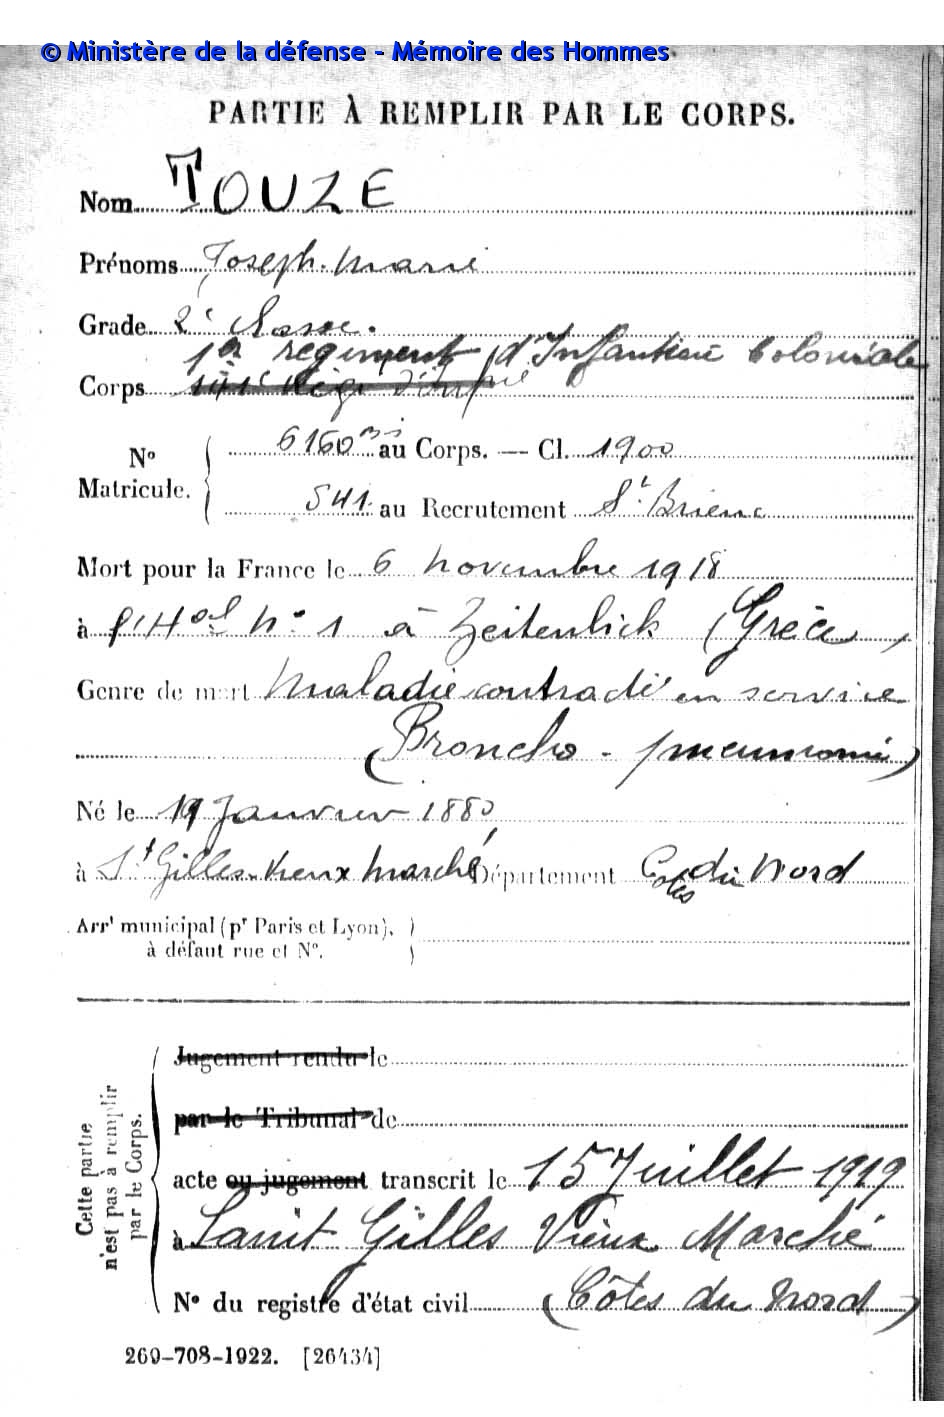 © Ministère de la défense - Mémoire des Hommes
PARTIE À REMPLIR PAR LE CORPS.
Nom TOUZE
Prénoms Joseph-Marie
Grade 2e Classe.
1er régiment d'Infanterie Coloniale
Corps
No Matricule. 6160 au Corps. — Cl. 1900
541 au Recrutement St Brieuc
Mort pour la France le 6 novembre 1918
à l'Hal no 1 à Zeitenlick (Grèce)
Genre de mort Maladie contractée en service
(Broncho-pneumonie)
Né le 19 Janvier 1880
à St Gilles-Vieux Marché Département Côtes du Nord
Arrt municipal (pr Paris et Lyon),
à défaut rue et No.
Cette partie n'est pas à remplir par le Corps.
Jugement rendu le
par le Tribunal de
acte ou jugement transcrit le 15 Juillet 1919
à Saint Gilles Vieux Marché
No du registre d'état civil (Côtes du Nord)
269-708-1922. [26434]